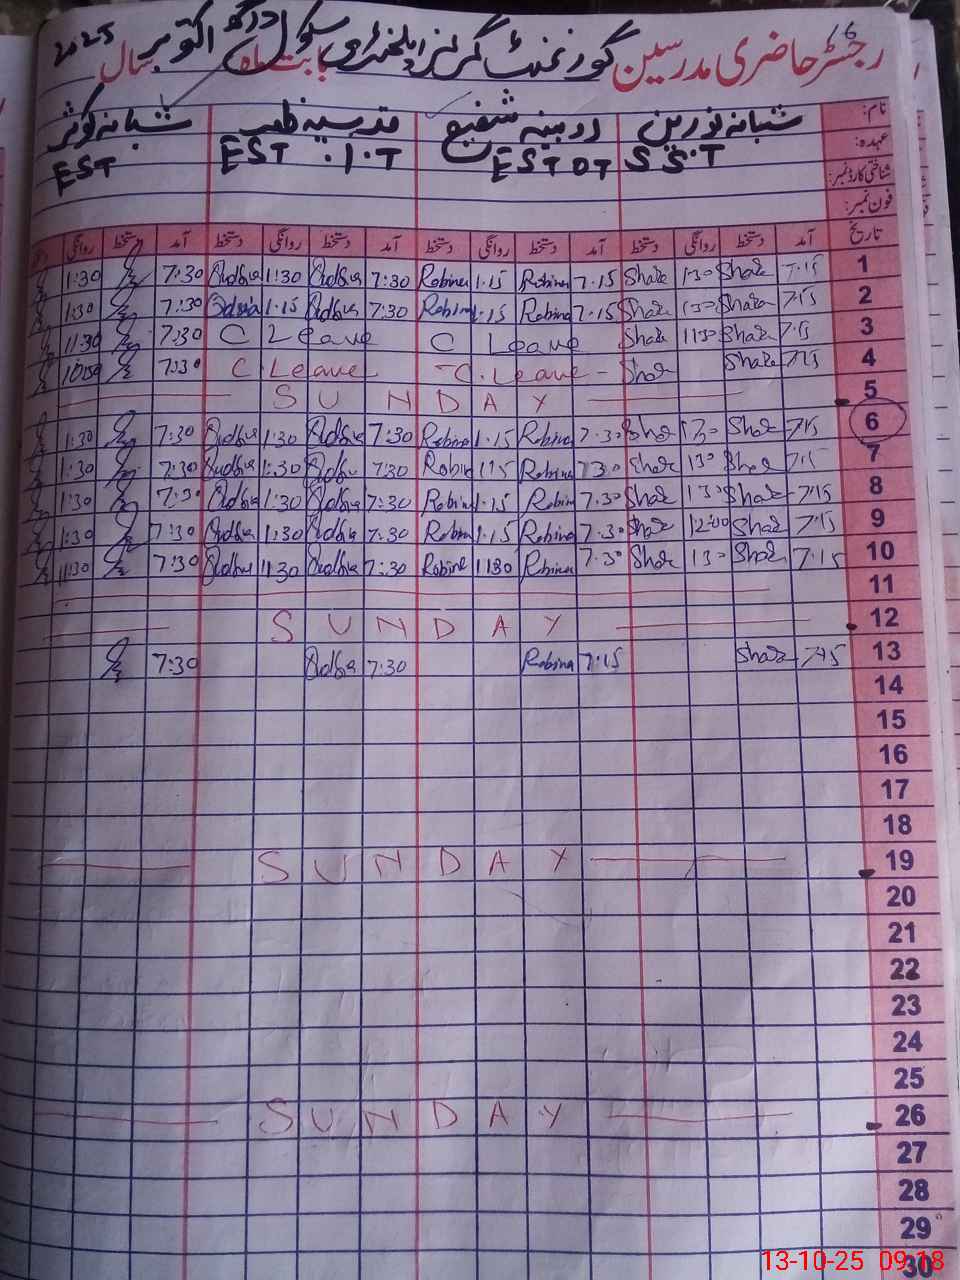 16
رجسٹر حاضری مدرسین گورنمنٹ گرلز ایلیمنٹری سکول بابت ماہ اکتوبر سال 2025
نام: شبانہ نورین روبینہ شفیع قدسیہ شبانہ کوثر
عہدہ: S.S.T EST DT EST .I.T EST
شناختی کارڈ نمبر:
فون نمبر:
تاریخ آمد دستخط روانگی دستخط آمد دستخط روانگی دستخط آمد دستخط روانگی دستخط آمد دستخط روانگی
1:30 7:30 Qudsia 1:30 Qudsia 7:30 Robina 1.15 Robina 7.15 Shaz 1:30 Shaz 7:15 1
1:30 7:30 Qudsia 1:15 Qudsia 7:30 Robina 1.15 Robina 7.15 Shaz 1:30 Shaz 7:15 2
11:30 7:30 C Leave C Leave Shaz 11:30 Shaz 7:15 3
10:30 7:30 C.Leave C.Leave Shaz Shaz 7:15 4
SUNDAY 5
1:30 7:30 Qudsia 1:30 Qudsia 7:30 Robina 1.15 Robina 7.30 Shaz 1:30 Shaz 7:15 6
1:30 7:30 Qudsia 1:30 Qudsia 7:30 Robina 1:15 Robina 7:30 Shaz 1:30 Shaz 7:15 7
1:30 7:30 Qudsia 1:30 Qudsia 7:30 Robina 1.15 Robina 7.30 Shaz 1:30 Shaz 7:15 8
1:30 7:30 Qudsia 1:30 Qudsia 7:30 Robina 1.15 Robina 7.30 Shaz 12:00 Shaz 7:15 9
11:30 7:30 Qudsia 11:30 Qudsia 7:30 Robina 11:30 Robina 7.30 Shaz 1:30 Shaz 7:15 10
11
SUNDAY 12
7:30 Qudsia 7:30 Robina 7:15 Shaz 7:15 13
14
15
16
17
18
SUNDAY 19
20
21
22
23
24
25
SUNDAY 26
27
28
29
30
13-10-25 09:18